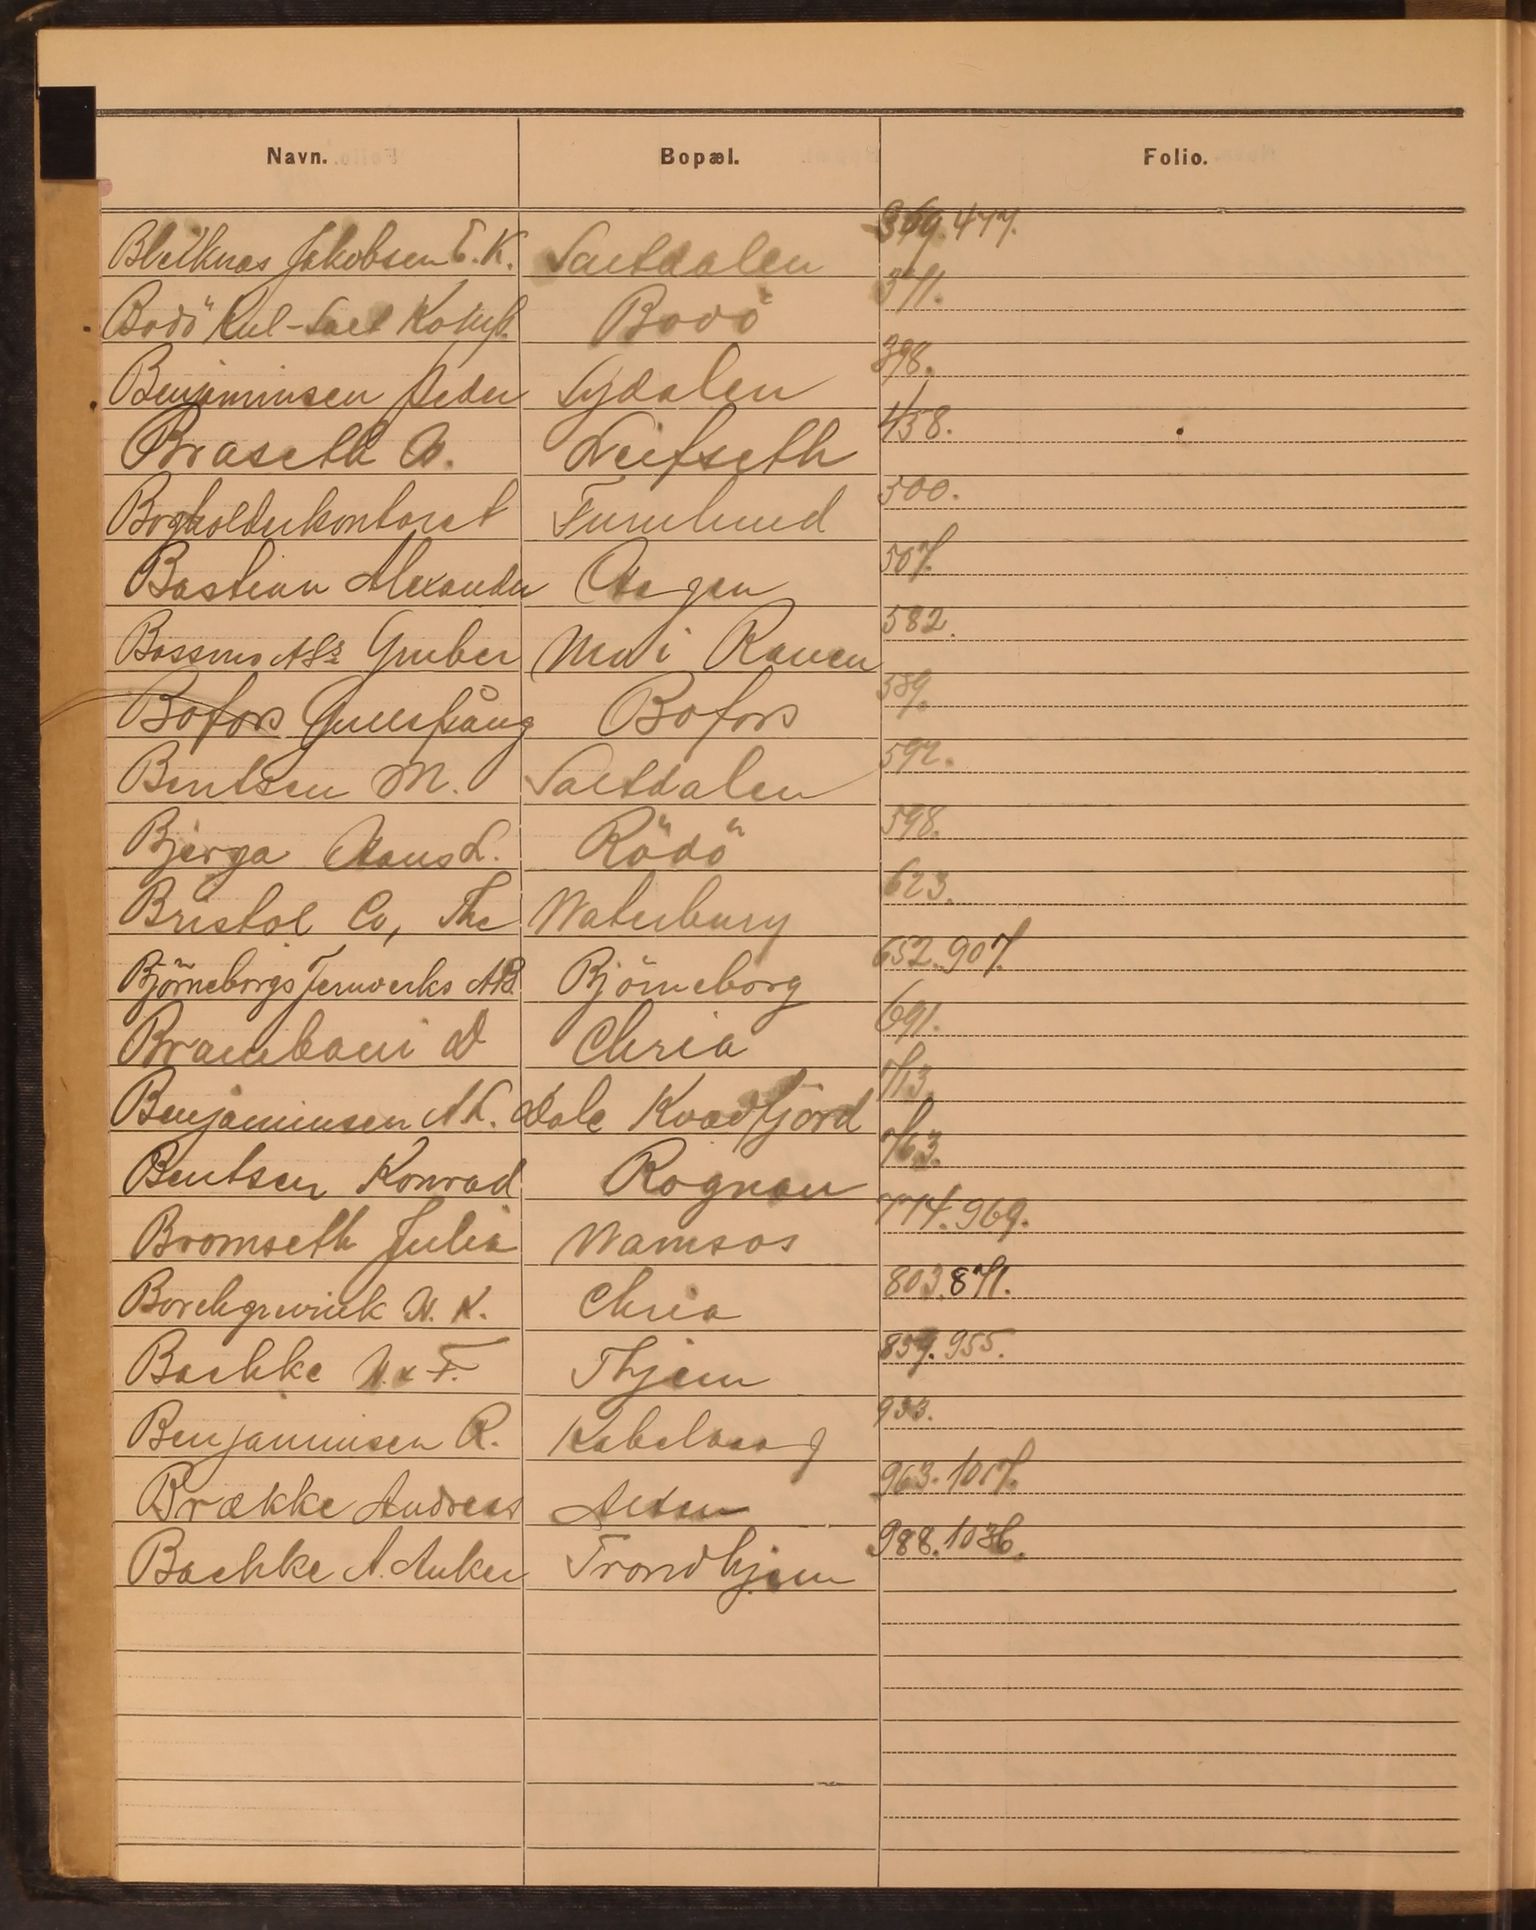 Navn. Bopæl. Folio.
Bleiknæs Jakobsen E. K. Saltdalen 369. 477.
Bodö Kul-Salt Komp. Bodö 371.
Benjaminsen Peder Sjdalen 398.
Braseth N. Leifseth 458.
Bogholderkontoret Furulund 500.
Bastian Alexander Hagen 507.
Bossmo Als Gruber Mo i Ranen 582.
Bofors Gullspång Bofors 589.
Bentsen M. Saltdalen 592.
Bjerga Hans L. Rödö 598.
Bristol Co, The Waterbury 623.
Björneborgs Jernverks AB. Björneborg 652. 907.
Brambani D Chria 691.
Benjaminsen A L. Dale Kvædfjord 713.
Bentsen Konrad Rognan 763.
Bromseth Julia Namsos 774. 969.
Borchgrevink N. K. Chria 803. 871.
Bachke N. & F. Thjem 859. 955.
Benjaminsen R. Kabelvaag 933.
Brække Andreas 963. 1017.
Bachke A. Anker Trondhjem 988. 1036.